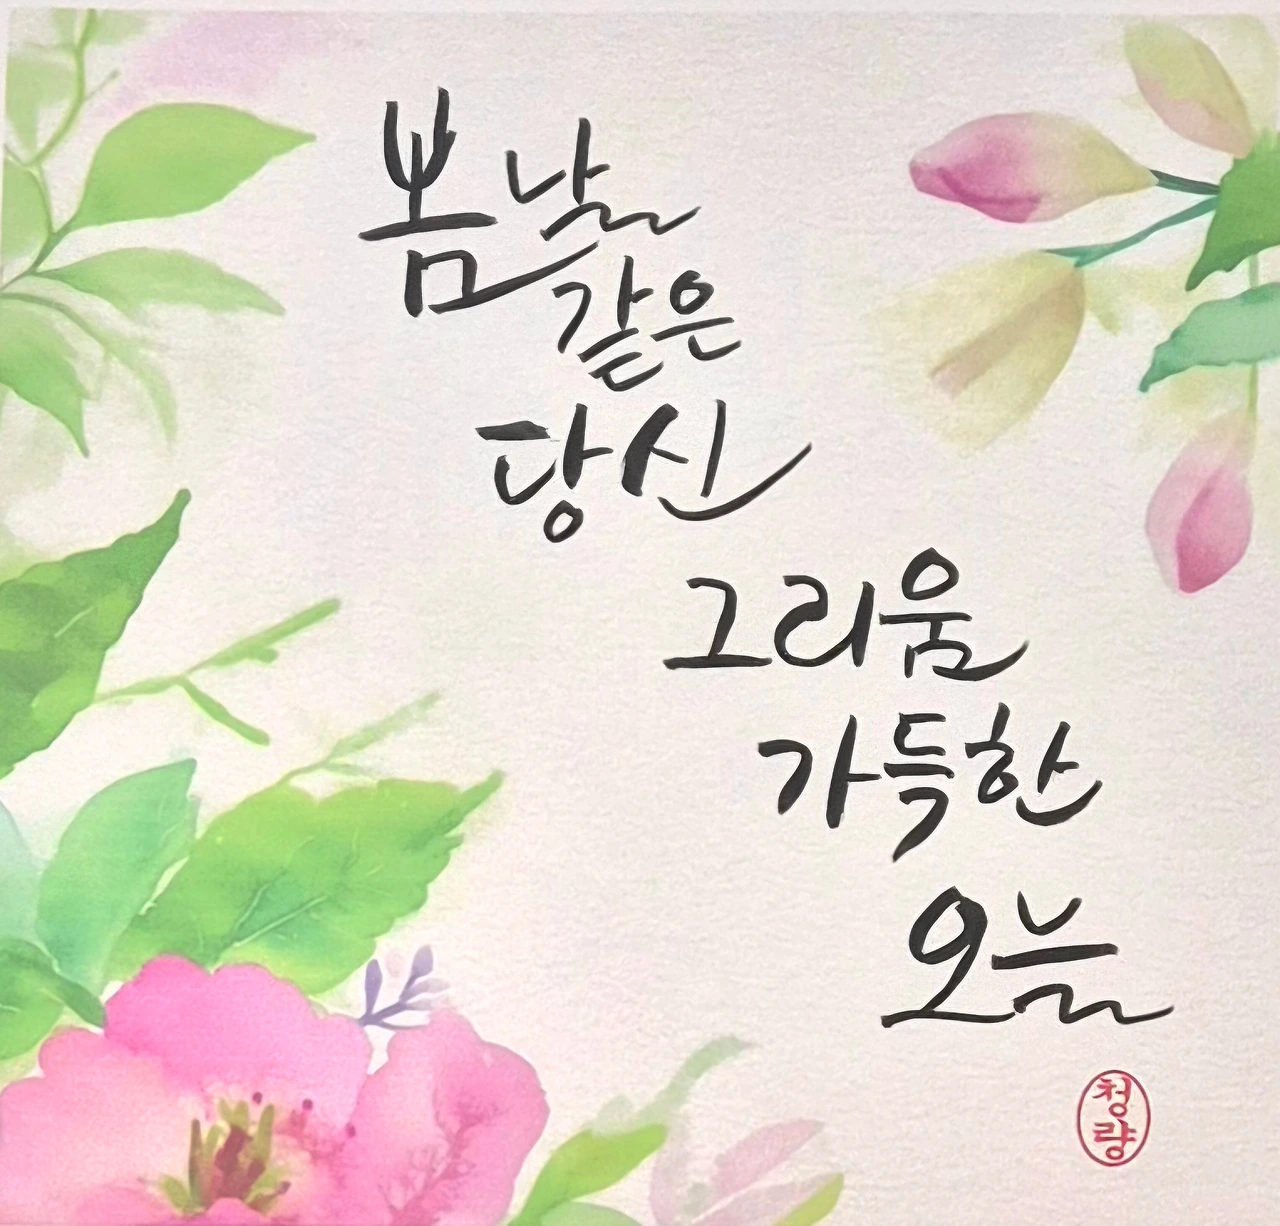 봄날
같은
당신
그리움
가득한
오늘
청량